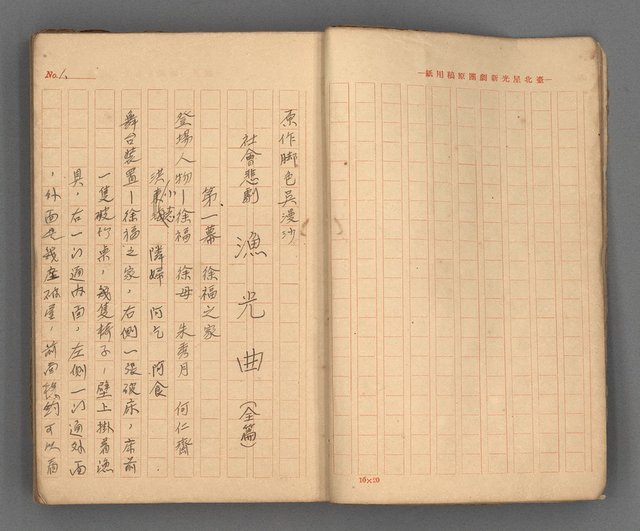 —臺北星光新劇團原稿用紙—
16×20
No. 1.
原作脚色吳漫沙
社會悲劇 漁光曲(全篇)
第一幕 徐福之家
登場人物—徐福 徐母 朱秀月 何仁齋
小憩
隣婦 阿乞 阿食
舞台裝置—徐福之家,右側一張破床,床前
一隻破竹桌,幾隻椅子,壁上掛着漁
具,右一门通内面,左側一门通外面
,外面是幾座破屋,前面隱約可以看